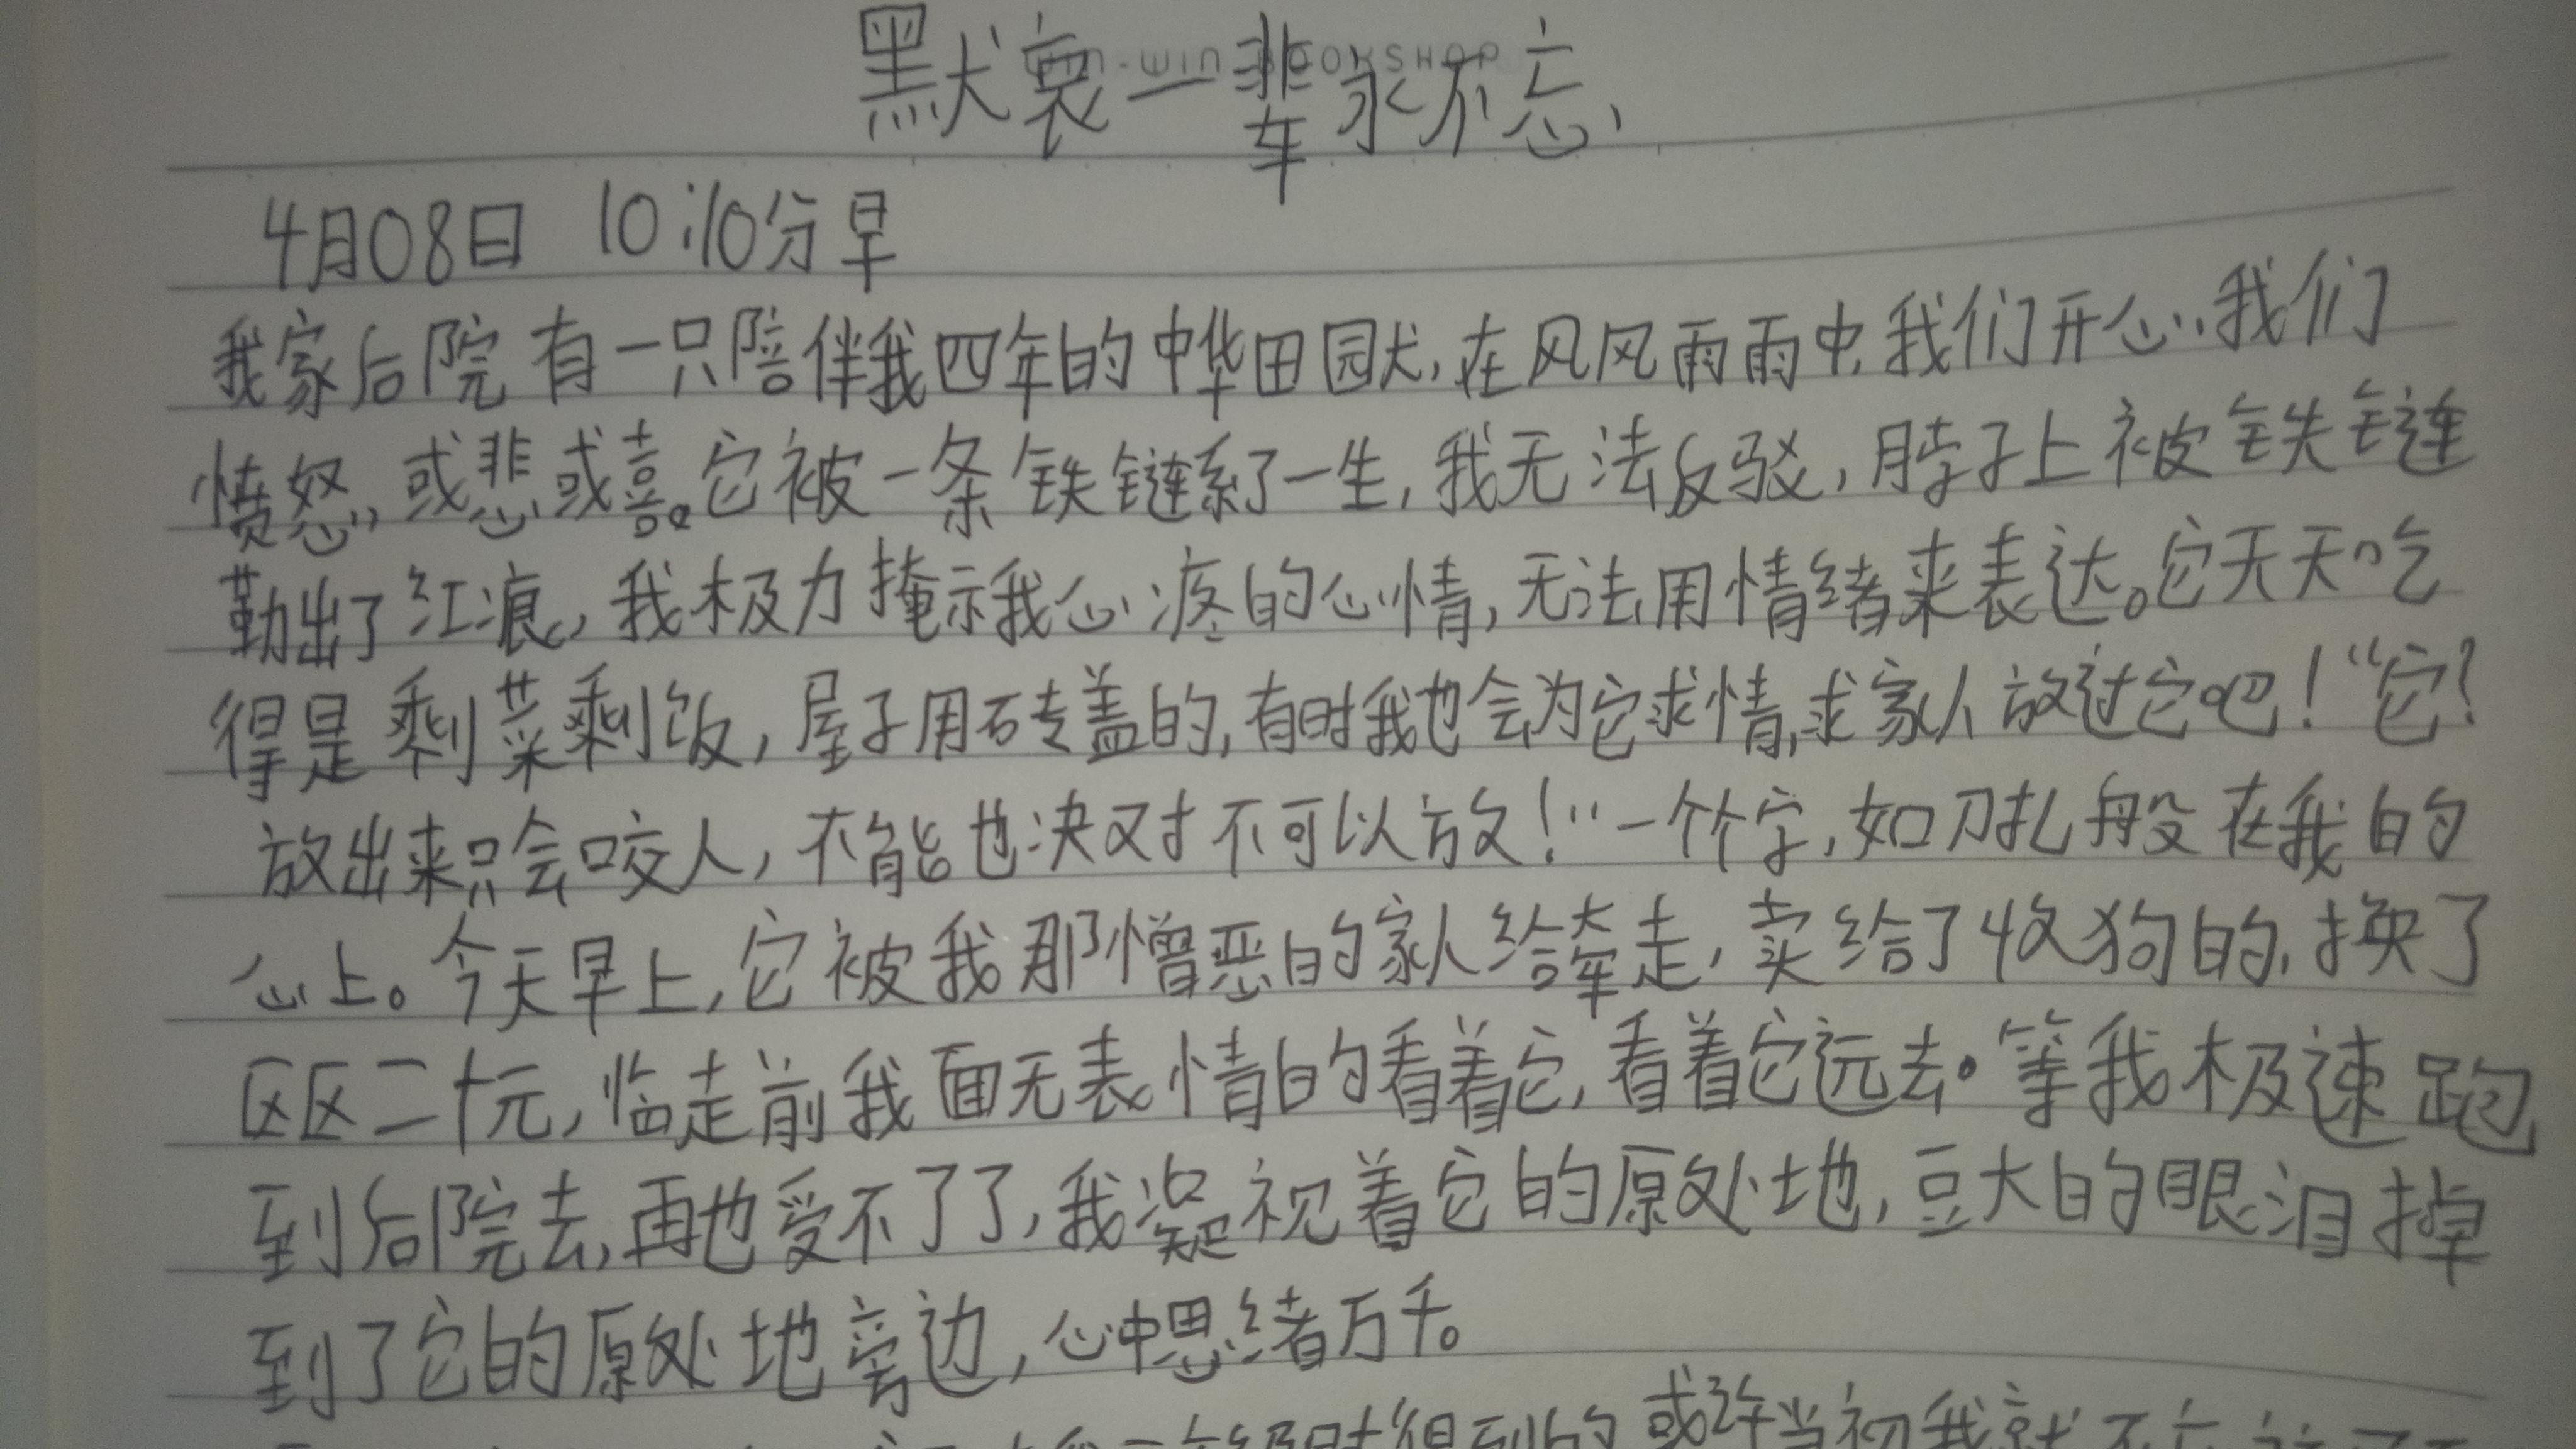 win-win BOOKSHOP
默哀一辈永不忘、
4月08日 10:10分早
我家后院有一只陪伴我四年的中华田园犬,在风风雨雨中,我们开心,我们
愤怒,或悲或喜。它被一条铁链系了一生,我无法反驳,脖子上被铁链
勒出了红痕,我极力掩示我心疼的心情,无法用情绪来表达。它天天吃
得是剩菜剩饭,屋子用砖盖的,有时我也会为它求情,求家人放过它吧!“它?
放出来只会咬人,不能也决对不可以放!”一个个字,如刀扎般在我的
心上。今天早上,它被我那憎恶的家人给牵走,卖给了收狗的,换了
区区二十元,临走前我面无表情的看着它,看着它远去。等我极速跑
到后院去,再也受不了了,我凝视着它的原处地,豆大的眼泪掉
到了它的原处地旁边,心中思绪万千。
时得到的 或许当初我就不